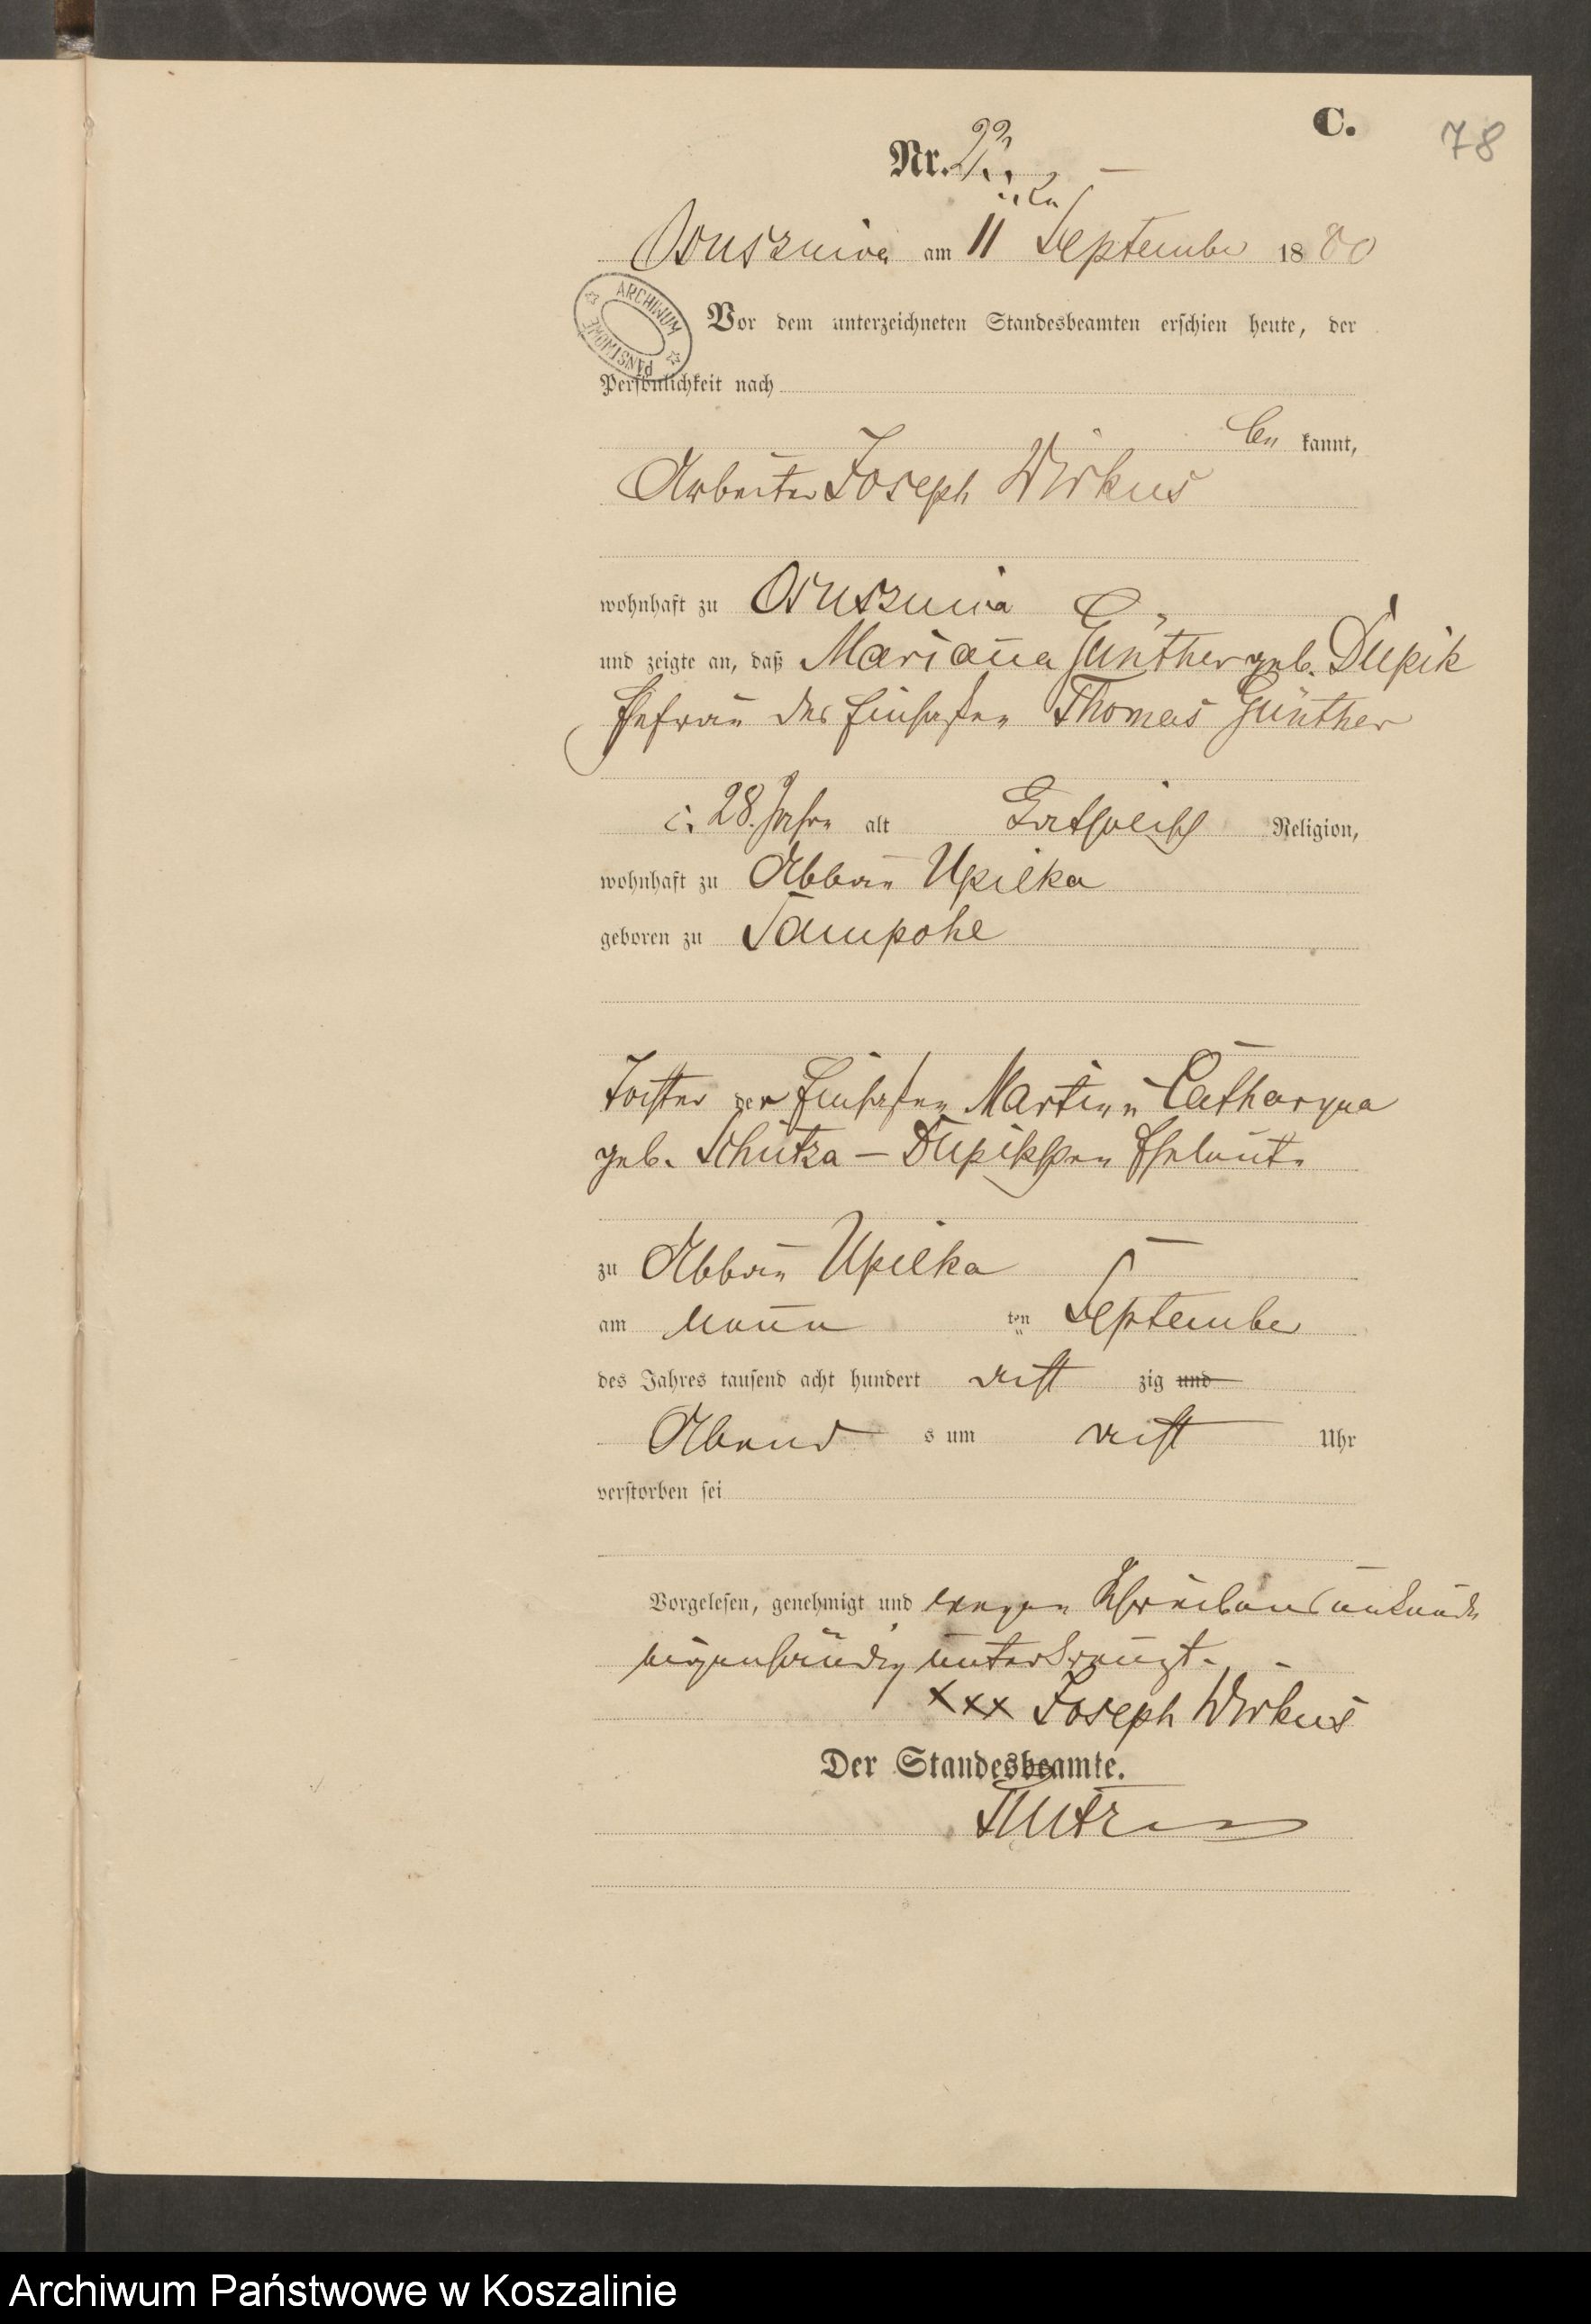 C.
78
Nr. 23.
Ossuszniva am 11 ten September 1880
ARCHIWUM PAŃSTWOWE
Vor dem unterzeichneten Standesbeamten erschien heute, der
Persönlichkeit nach
be kannt,
Arbeiter Joseph Wirkus
wohnhaft zu
und zeigte an, daß Marianna Günther geb. Dupik
Ehefrau des Einsassen Thomas Günther
28 Jahre alt Catholisch Religion,
wohnhaft zu Abbau Upilka
geboren zu Sampohl
Tochter der Einsassen Martin u Catharyna
geb. Schutza – Dupikschen Eheleute
zu Abbau Upilka
am neun ten September
des Jahres tausend acht hundert acht zig und
Abend s um acht Uhr
verstorben sei
Vorgelesen, genehmigt und wegen Schreibensunkunde
eigenhändig unterkreuzt.
xxx Joseph Wirkus
Der Standesbeamte.
Archiwum Państwowe w Koszalinie